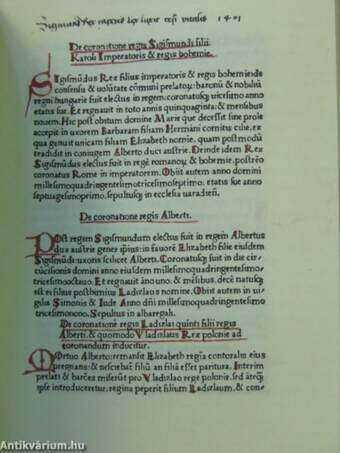 Sigismundus Rex
De coronatione regis Sigismundi filii
Karoli Imperatoris & regis bohemie.
Sigismūdus Rex filius imperatoris & regis bohemie de
cōsensu & volūtate cōmuni prelatoꝝ: baronū & nobiliū
regni hungarie fuit electus in regem: coronatusqꝫ tricesimo anno
etatis sue. Et regnauit in toto annis quinquaginta: & mensibus
nouem. Hic post obitum domine Marie que decessit sine prole
accepit in uxorem Barbaram filiam Hermāni comitis cube. ex
qua genuit unicam filiam Elizabeth nomie. quam postmodū
tradidit in coniugem Alberto duci austrie. Deinde idem Rex
Sigismūdus electus fuit in regē romanoꝝ & bohemie. postreō
coronatus Rome in imperatorem. Obiit autem anno domini
millesimoquadringentesimotricesimoseptimo. etatis sue anno
septuagesimo. sepultusqꝫ in ecclesia uaradieñ.
De coronatione regis Alberti.
Post regem Sigismundum electus fuit in regem Albertus
dux austrie gener ipsius: in fauorē Elizabeth filie eiusdem
Sigismūdi: uxoris scilicet Alberti. Coronatusqꝫ fuit in die circūcisionis
domini anno eiusdem millesimoquadringentesimotricesimo
octauo. Et regnauit āno uno. & mēsibus. decē natusqꝫ
est ei filius posthimius Ladizlaus nomine. Obiit autem in uigilia
Simonis & Iude Anno dñi millesimoquadringentesimotricesimo
nono. Sepultus in albaregali.
De coronatione regis Ladizlai quinti filii regis
Alberti. & quomodo Vladizlaus Rex polonie ad
coronandum inducitur.
Mortuo Alberto: remansit Elizabeth regīa conthoralis eius
pregnans: & nesciebat filiū an filiā esset paritura. Interim
prelati & barōes miserūt pro Vladizlao rege polonie. sed ātequā
ipse introduceretur. regina peperit filium Ladizlaum. & con
Antikvárium.hu
antikvarium.hu